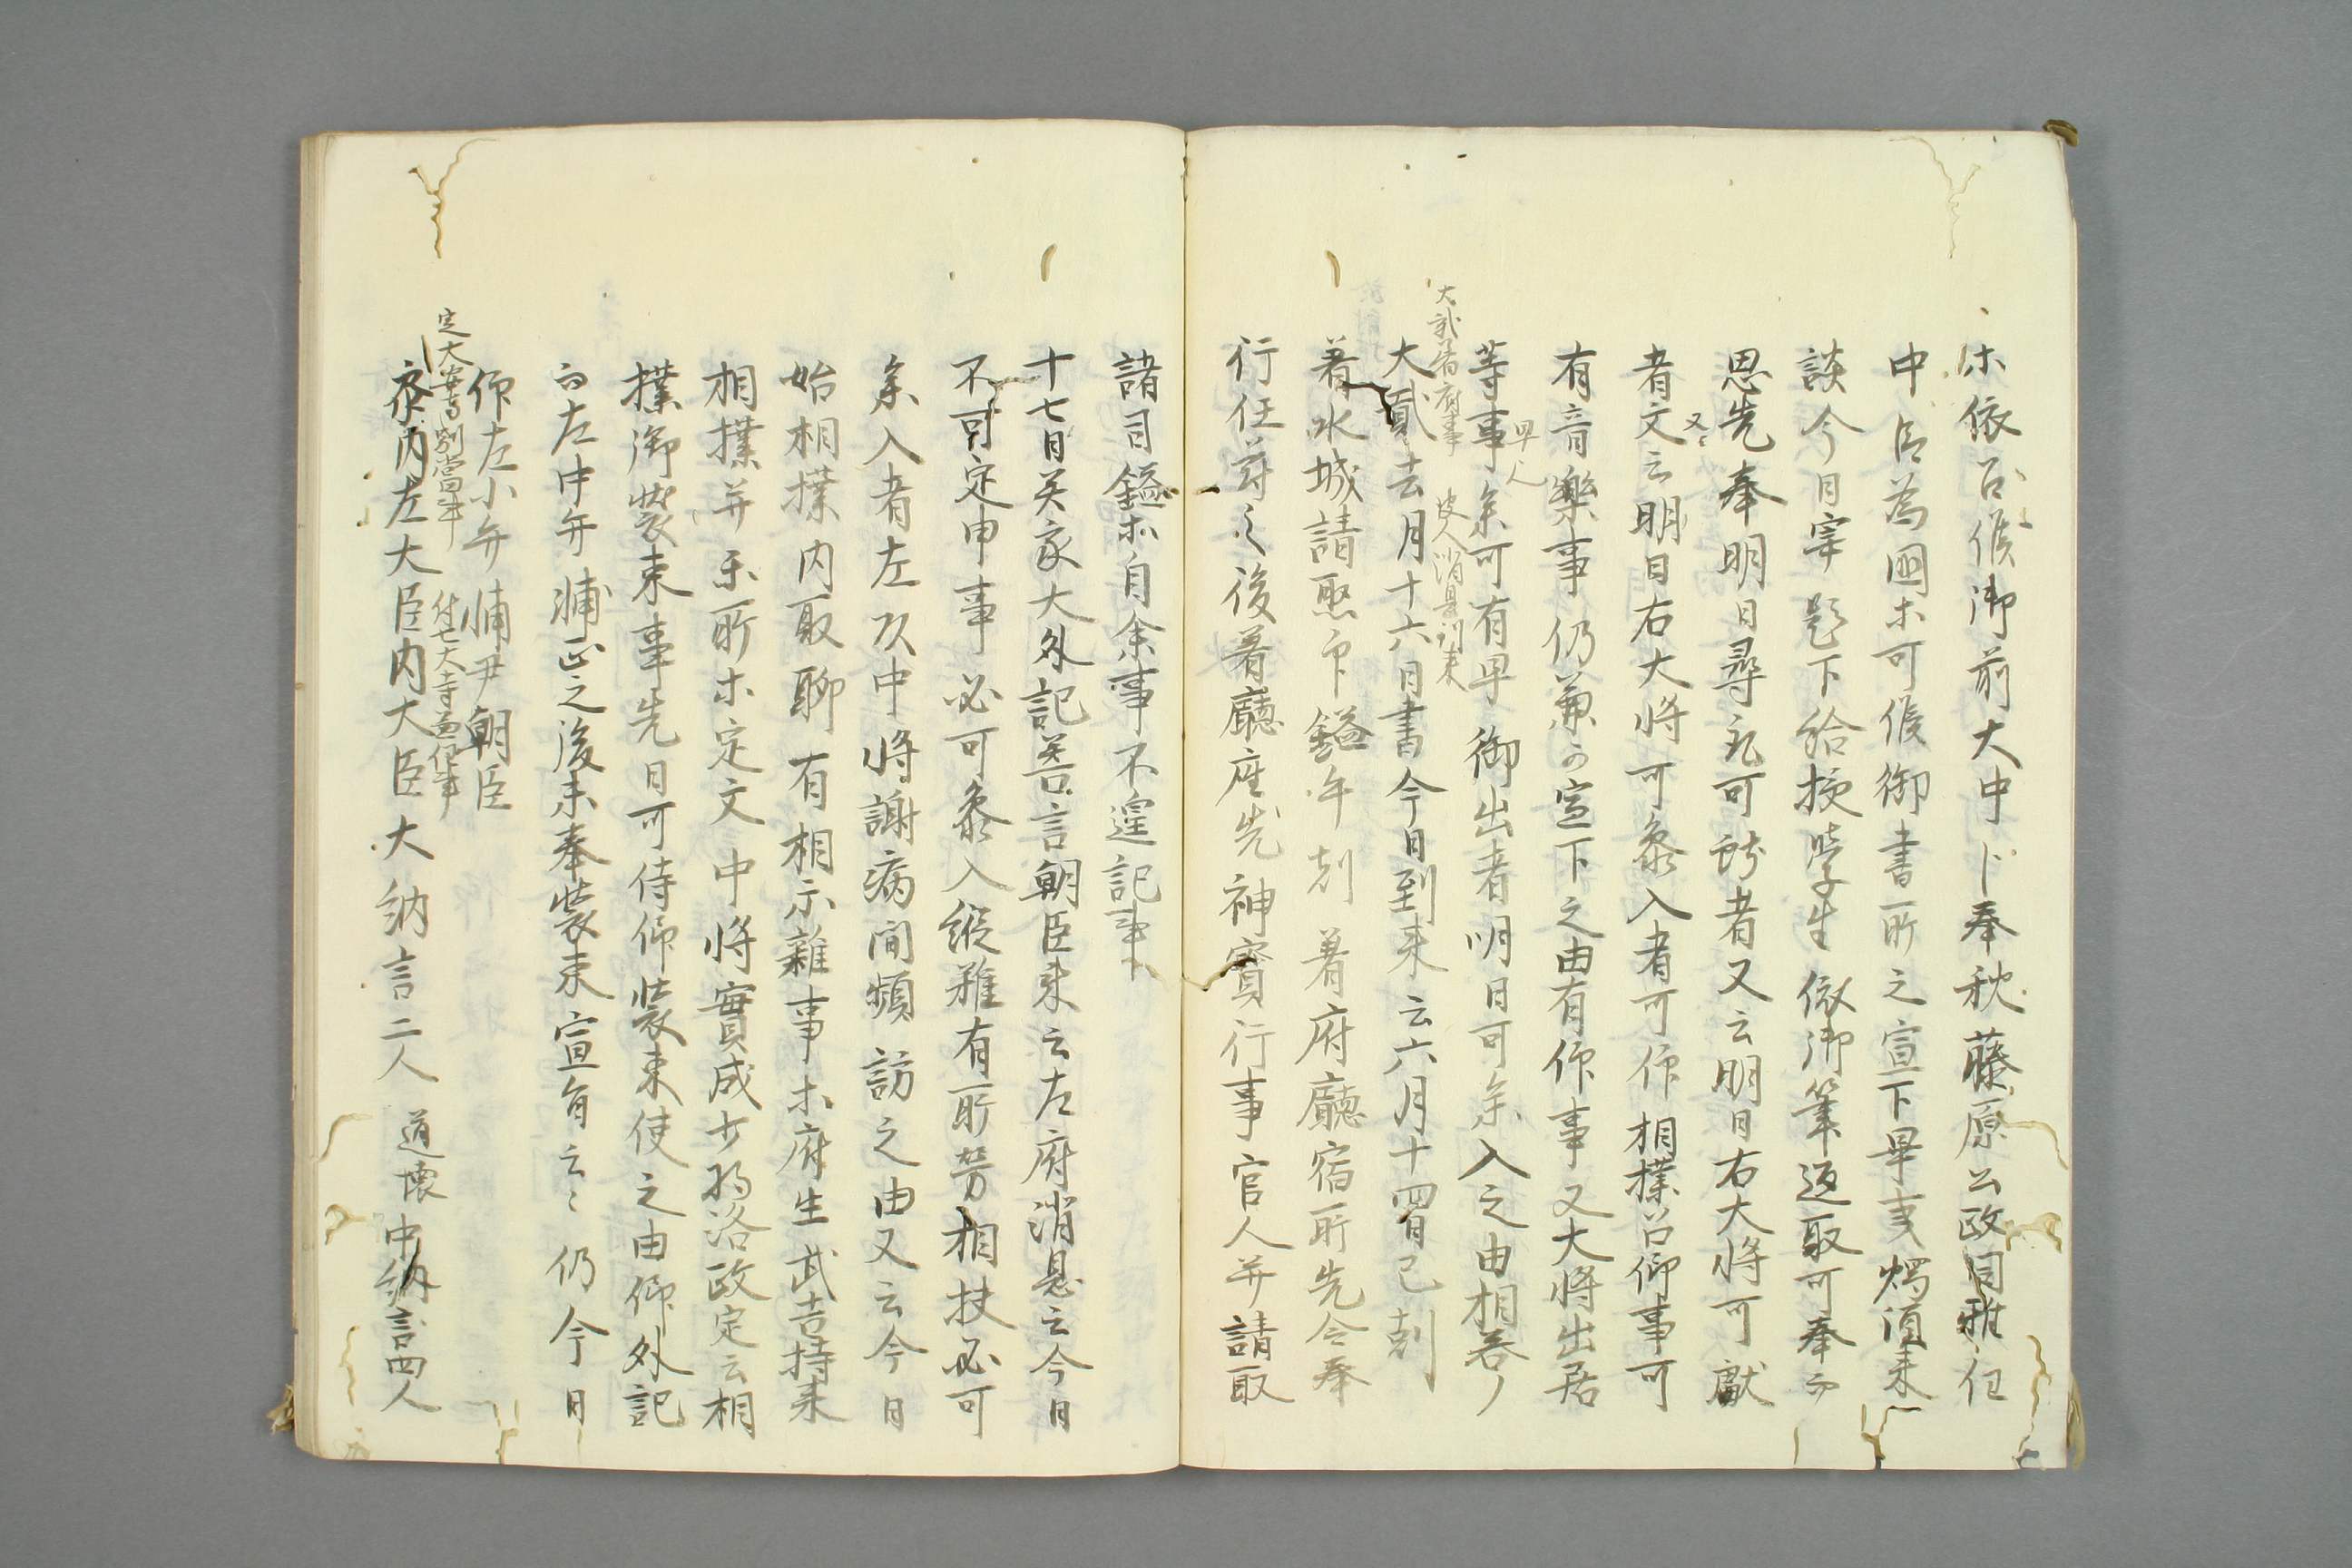 依召候御前大中卜奉秋藤原公政同雅任
中臣為國ホ可候御書所之宣下畢
談今日宰題下給授學生倣御筆返取可奉
思先奉明日尋記可者又云明日右大将可獻
又〻
者文云明日右大将可参入者可仰相撲召仰事可
有音樂事仍兼宣下之由有仰事又大将出居
早人
等事可有早御出者明日可参入之由相答
大貳着府事
彼人消息到来
大貳去月十六日書今日到来云六月十四日巳剋
着水城請取印鎰午剋着府廳宿所先令奉
行任符之後着廳座先神寳行事官人并請取
諸司鎰ホ自余事不遑記事
十七日大外記善言朝臣来云左府消息云今日
不可定申事必可参入縦雖有所労相扶必可
参入者左中将謝病間頻訪之由又云今日
始相撲内取聊有相示雑事ホ府生武吉持来
相撲并所ホ定文中将實成少将政定云相
撲御装束事先日可侍仰装束使之由仰外記
而左中弁之後未奉装束宣旨云〻仍今日
仰左小弁輔尹朝臣
定大安寺別當事
付七大寺事
参内左大臣内大臣大納言二人道懐中納言四人